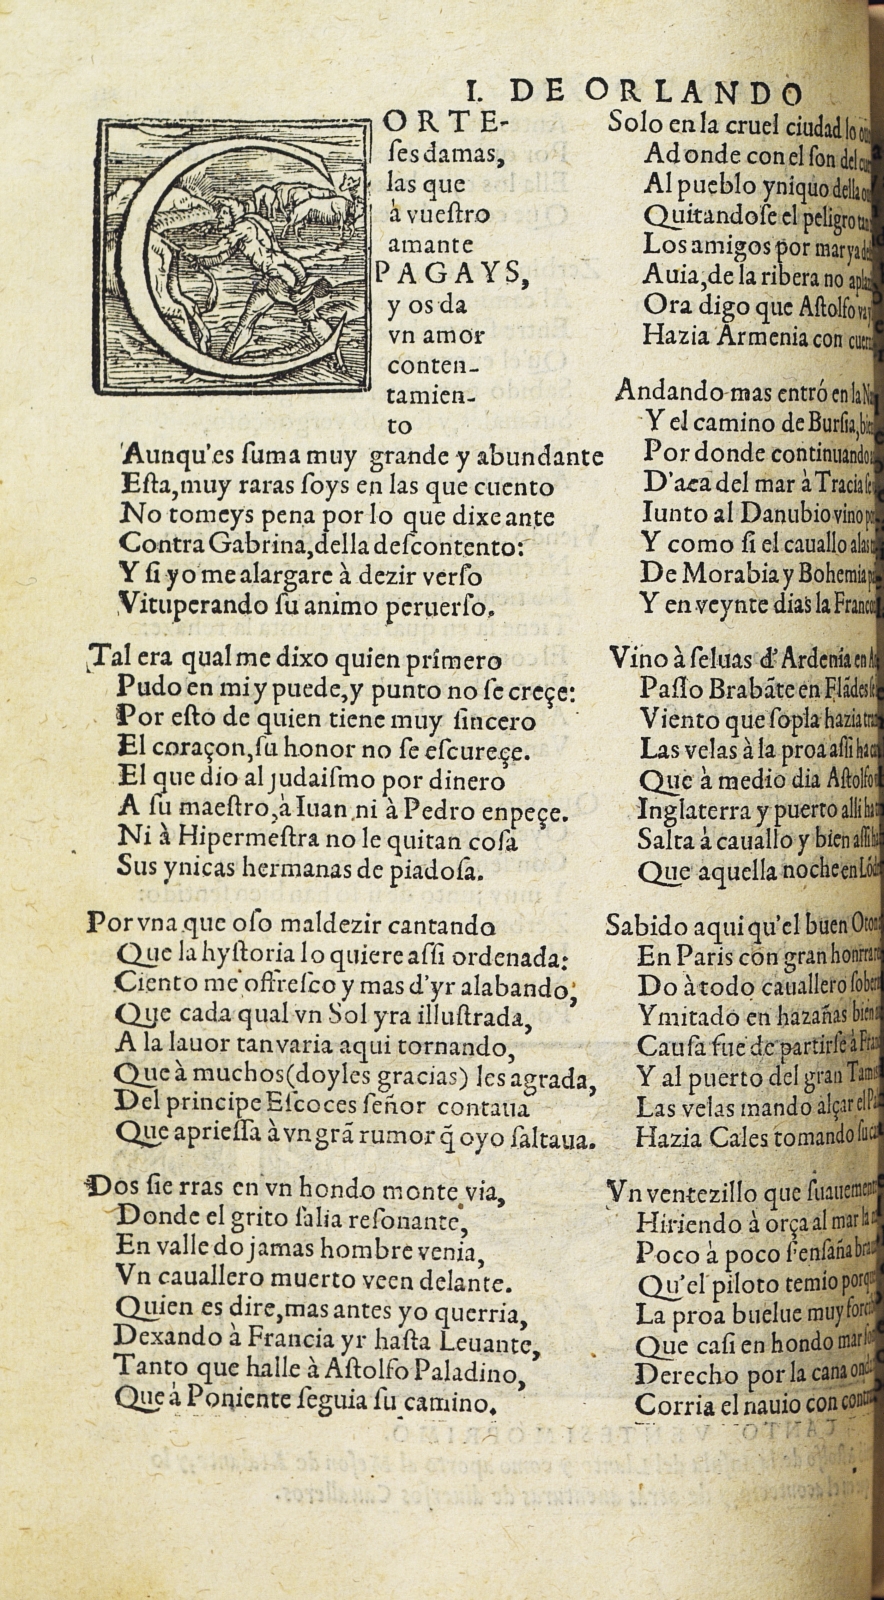 I. DE ORLANDO
CORTE-
ſes damas,
las que
à vueſtro
amante
PAGAYS,
y os da
vn amor
conten-
tamien-
to
Aunqu'es ſuma muy grande y abundante
Eſta, muy raras ſoys en las que cuento
No tomeys pena por lo que dixe ante
Contra Gabrina, della deſcontento:
Y ſi yo me alargare à dezir verſo
Vituperando ſu animo peruerſo.
Tal era qual me dixo quien primero
Pudo en mi y puede, y punto no ſe creçe:
Por eſto de quien tiene muy ſincero
El coraçon, ſu honor no ſe eſcureçe.
El que dio al judaiſmo por dinero
A ſu maeſtro, à Iuan, ni à Pedro enpeçe.
Ni à Hipermeſtra no le quitan coſa
Sus ynicas hermanas de piadoſa.
Por vna que oſo maldezir cantando
Que la hyſtoria lo quiere aſſi ordenada:
Ciento me offreſco y mas d'yr alabando,
Que cada qual vn Sol yra illuſtrada,
A la lauor tan varia aqui tornando,
Que à muchos (doyles gracias) les agrada,
Del principe Eſcoces ſeñor contaua
Que aprieſſa à vn grã rumor q̃ oyo ſaltaua.
Dos ſie rras en vn hondo monte via,
Donde el grito ſalia reſonante,
En valle do jamas hombre venia,
Vn cauallero muerto veen delante.
Quien es dire, mas antes yo querria,
Dexando à Francia yr haſta Leuante,
Tanto que halle à Aſtolfo Paladino,
Que à Poniente ſeguia ſu camino.
Solo en la cruel ciudad lo
Adonde con el ſon del
Al pueblo yniquo della
Quitandoſe el peligro
Los amigos por mar ya
Auia, de la ribera no
Ora digo que Aſtolfo
Hazia Armenia con
Andando mas entró en la
Y el camino de Burſia,
Por donde continuando
D'aca del mar à Tracia
Iunto al Danubio vino
Y como ſi el cauallo
De Morabia y Bohemia
Y en veynte dias la
Vino à ſeluas d'Ardenia en
Paſſo Brabãte en Flãdes
Viento que ſopla hazia
Las velas à la proa aſſi
Que à medio dia Aſtolfo
Inglaterra y puerto alli
Salta à cauallo y bien aſſi
Que aquella noche en
Sabido aqui qu'el buen
En Paris con gran
Do à todo cauallero
Ymitado en hazañas
Cauſa fue de partirſe à
Y al puerto del gran
Las velas mando alçar
Hazia Cales tomando
Vn ventezillo que
Hiriendo à orça al mar
Poco à poco ſ'enſaña
Qu'el piloto temio
La proa buelue muy
Que caſi en hondo mar
Derecho por la cana
Corria el nauio con